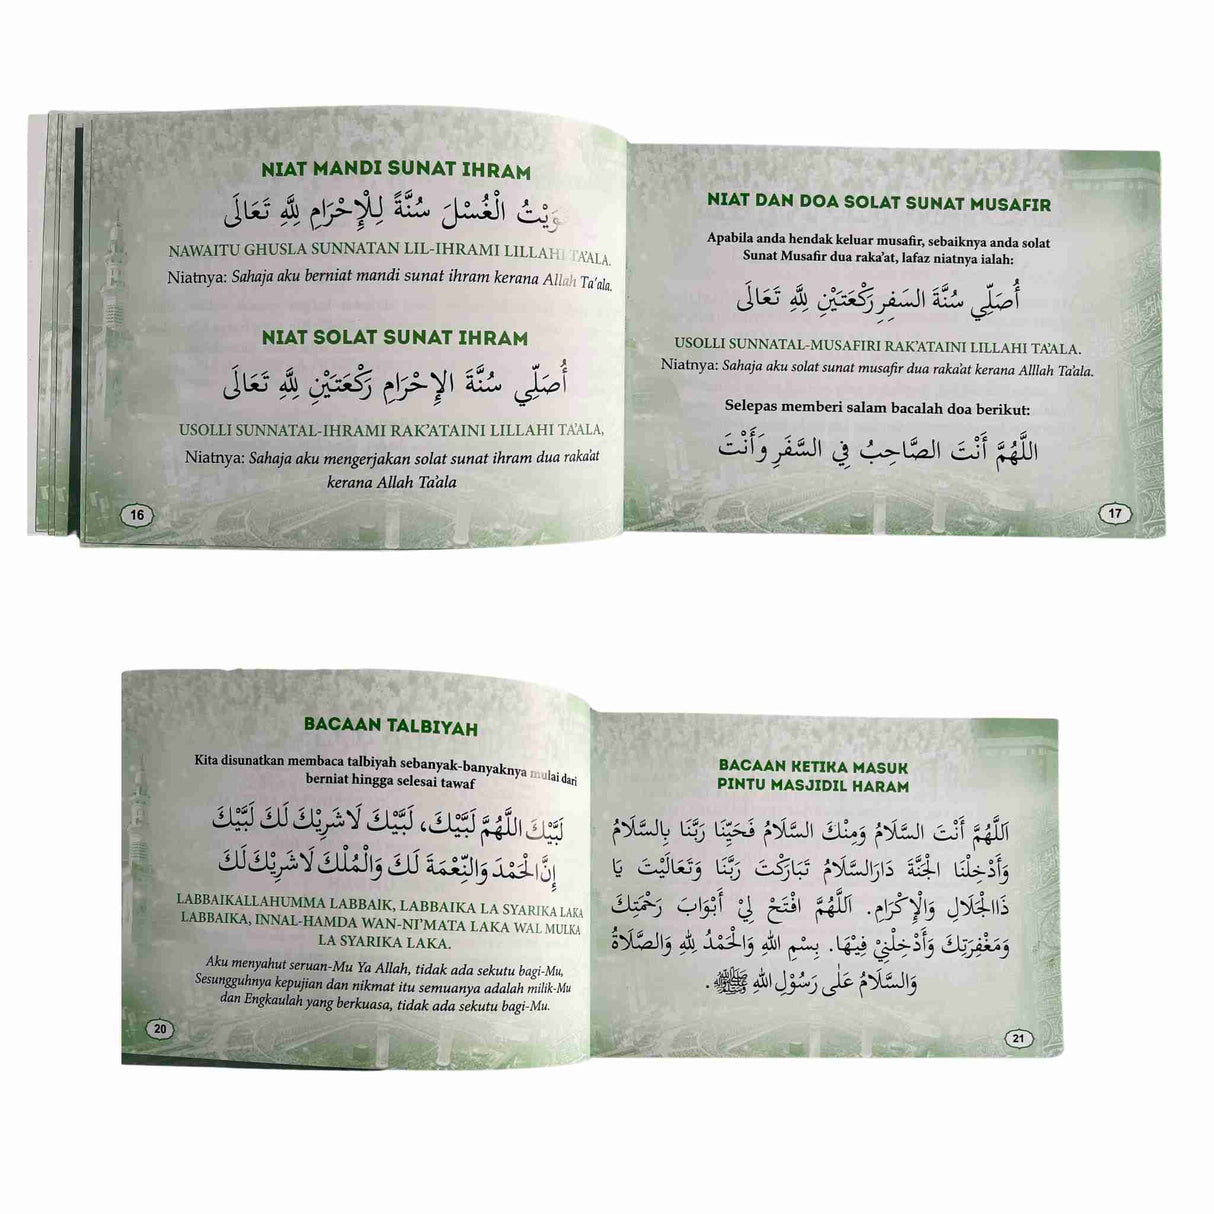 NIAT MANDI SUNAT IHRAM
نَوَيْتُ الْغُسْلَ سُنَّةً لِلْإِحْرَامِ لِلَّهِ تَعَالَى
NAWAITU GHUSLA SUNNATAN LIL-IHRAMI LILLAHI TA'ALA.
Niatnya: Sahaja aku berniat mandi sunat ihram kerana Allah Ta'ala.
NIAT SOLAT SUNAT IHRAM
أُصَلِّي سُنَّةَ الإِحْرَامِ رَكْعَتَيْنِ لِلَّهِ تَعَالَى
USOLLI SUNNATAL-IHRAMI RAK'ATAINI LILLAHI TA'ALA,
Niatnya: Sahaja aku mengerjakan solat sunat ihram dua raka'at
kerana Allah Ta'ala
16
NIAT DAN DOA SOLAT SUNAT MUSAFIR
Apabila anda hendak keluar musafir, sebaiknya anda solat
Sunat Musafir dua raka'at, lafaz niatnya ialah:
أُصَلِّي سُنَّةَ السَفِرِ رَكْعَتَيْنِ لِلَّهِ تَعَالَى
USOLLI SUNNATAL-MUSAFIRI RAK'ATAINI LILLAHI TA'ALA.
Niatnya: Sahaja aku solat sunat musafir dua raka'at kerana Alllah Ta'ala.
Selepas memberi salam bacalah doa berikut:
اللَّهُمَّ أَنْتَ الصَّاحِبُ فِي السَّفَرِ وَأَنْتَ
17
BACAAN TALBIYAH
Kita disunatkan membaca talbiyah sebanyak-banyaknya mulai dari
berniat hingga selesai tawaf
لَبَّيْكَ اللَّهُمَّ لَبَّيْكَ، لَبَّيْكَ لَا شَرِيْكَ لَكَ لَبَّيْكَ
إِنَّ الْحَمْدَ وَالنِّعْمَةَ لَكَ وَالْمُلْكَ لَا شَرِيْكَ لَكَ
LABBAIKALLAHUMMA LABBAIK, LABBAIKA LA SYARIKA LAKA
LABBAIKA, INNAL-HAMDA WAN-NI'MATA LAKA WAL MULKA
LA SYARIKA LAKA.
Aku menyahut seruan-Mu Ya Allah, tidak ada sekutu bagi-Mu,
Sesungguhnya kepujian dan nikmat itu semuanya adalah milik-Mu
dan Engkaulah yang berkuasa, tidak ada sekutu bagi-Mu.
20
BACAAN KETIKA MASUK
PINTU MASJIDIL HARAM
اَللَّهُمَّ أَنْتَ السَّلَامُ وَمِنْكَ السَّلَامُ فَحَيِّنَا رَبَّنَا بِالسَّلَامُ
وَأَدْخِلْنَا الْجَنَّةَ دَارَالسَّلَامُ تَبَارَكْتَ رَبَّنَا وَتَعَالَيْتَ يَا
ذَاالْجَلَالِ وَالْإِكْرَامِ. اَللَّهُمَّ افْتَحْ لِيْ أَبْوَابَ رَحْمَتِكَ
وَمَغْفِرَتِكَ وَأَدْخِلْنِيْ فِيْهَا. بِسْمِ اللهِ وَالْحَمْدُ لِلهِ وَالصَّلَاةُ
وَالسَّلَامُ عَلَى رَسُوْلِ اللهِ ﷺ.
21